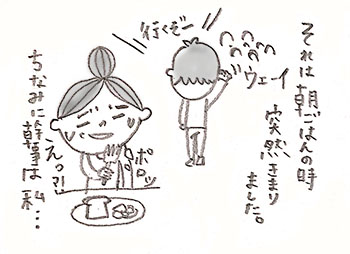 それは朝ごはんの時
突然きまり
ました。
行くぞー
ウェイ
えっ?!
ポロッ
ちなみに幹事は私…